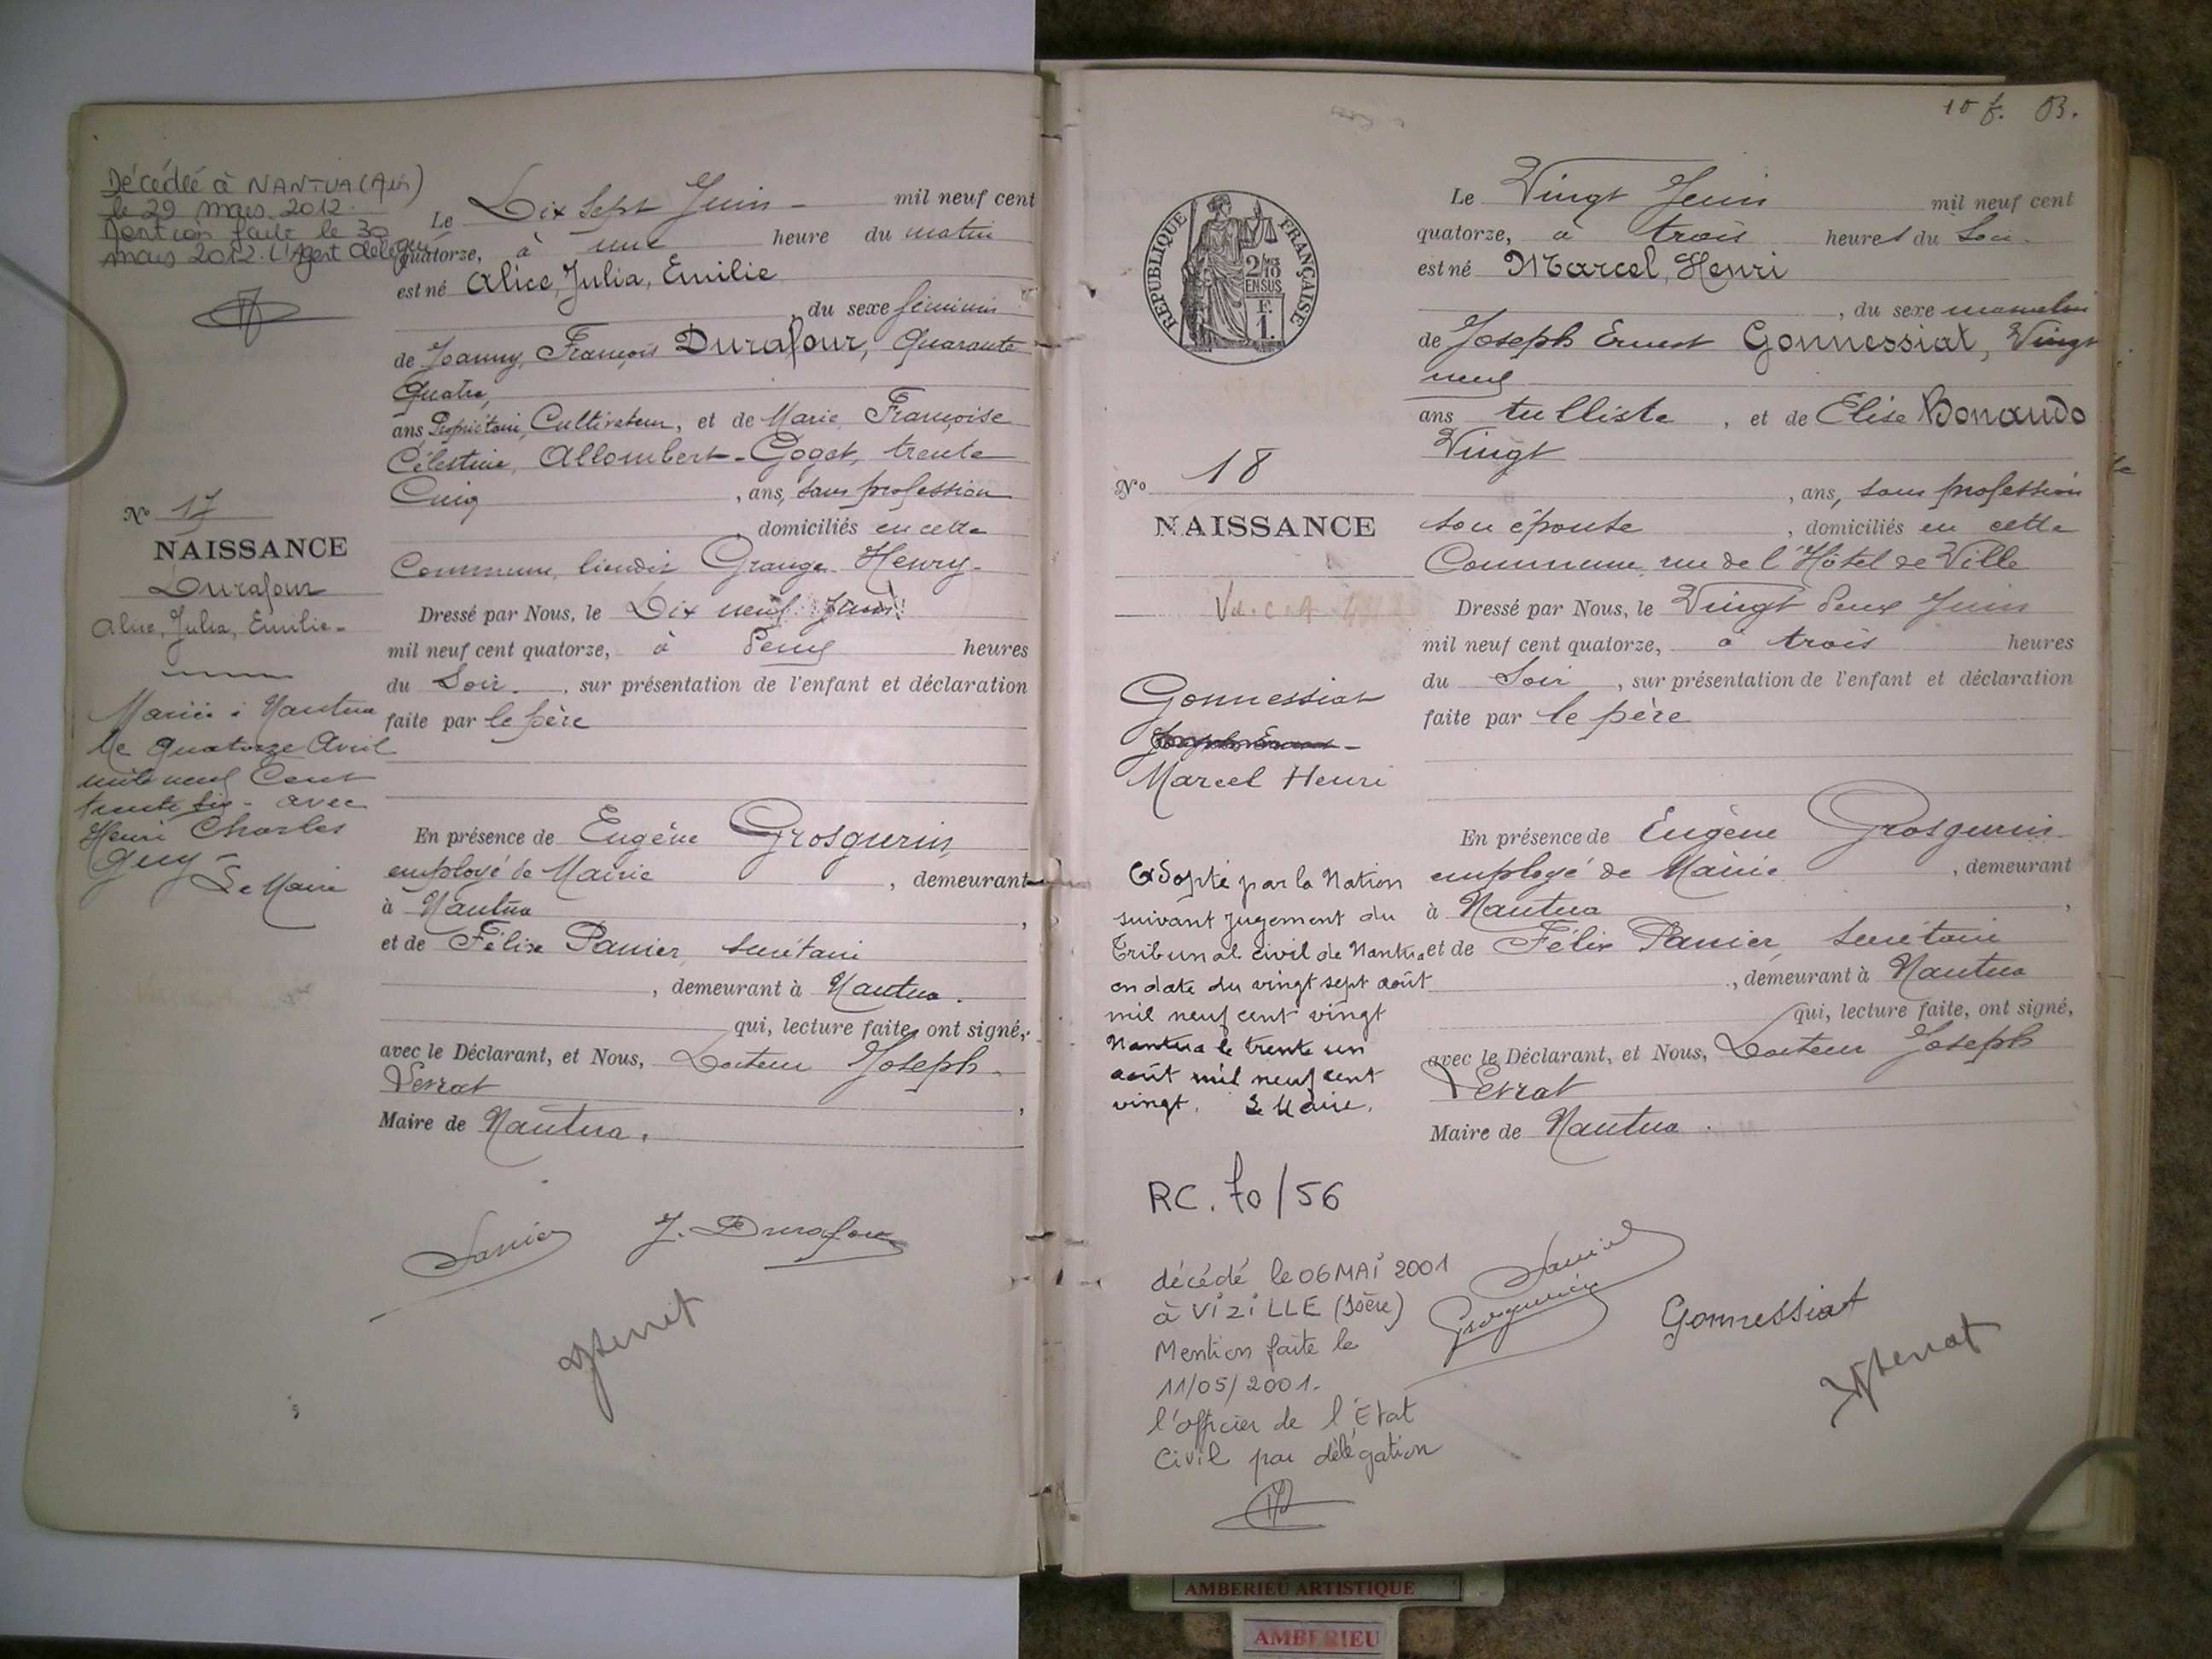 Décédée à NANTUA (Ain)
le 29 mars 2012.
Mention faite le 30
mars 2012. L'Agent délégué
N° 17
NAISSANCE
Durafour
Alice, Julia, Emilie -
Mariée à Nantua
le quatorze Avril
mil neuf Cent
trente six - avec
Henri Charles
Guy -
Le Maire
Le Dix Sept Juin - mil neuf cent
quatorze, à une heure du matin
est né Alice, Julia, Emilie
, du sexe féminin
de Joanny, François Durafour, Quarante
Quatre,
ans Propriétaire Cultivateur, et de Marie Françoise
Célestine, Allombert-Goget, trente
Cinq , ans, sans profession
, domiciliés en cette
Commune, lieudit Grange Henry -
Dressé par Nous, le Dix neuf Juin
mil neuf cent quatorze, à Deux heures
du Soir , sur présentation de l'enfant et déclaration
faite par le père
En présence de Eugène Grosgurin,
employé de Mairie , demeurant
à Nantua ,
et de Félix Panier, secrétaire
, demeurant à Nantua.
qui, lecture faite, ont signé,
avec le Déclarant, et Nous, Docteur Joseph
Levrat ,
Maire de Nantua.
Panier J. Durafour
10 f. B.
REPUBLIQUE FRANÇAISE
2/10 MES
EN SUS
F.
1.
N° 18
NAISSANCE
Gonnessiat
Marcel Henri
Adopté par la Nation
suivant jugement du
Tribunal civil de Nantua
en date du vingt sept août
mil neuf cent vingt
Nantua le trente un
août mil neuf cent
vingt. Le Maire.
RC. 70/56
décédé le 06 MAI 2001
à VIZILLE (Isère)
Mention faite le
11/05/2001.
l'officier de l'Etat
Civil par délégation
Le Vingt Juin mil neuf cent
quatorze, à trois heures du Soir -
est né Marcel, Henri
, du sexe masculin
de Joseph Ernest Gonnessiat, Vingt
neuf
ans tulliste , et de Elise Bonaudo
Vingt
, ans, sans profession
son épouse , domiciliés en cette
Commune, rue de l'Hôtel de Ville
Dressé par Nous, le Vingt Deux Juin
mil neuf cent quatorze, à trois heures
du Soir , sur présentation de l'enfant et déclaration
faite par le père
En présence de Eugène Grosgurin
employé de Mairie , demeurant
à Nantua ,
et de Félix Panier, secrétaire
, demeurant à Nantua
qui, lecture faite, ont signé,
avec le Déclarant, et Nous, Docteur Joseph
Levrat
Maire de Nantua.
Panier
Grosgurin
Gonnessiat
AMBERIEU ARTISTIQUE
AMBERIEU